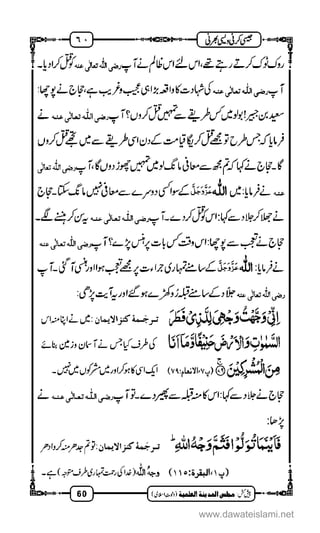 جیسی کرنی ویسی بھرنی
٦٠
روک ٹوک کرتے رہتے تھے، اس لئے اس ظالم نے آپ رضی اللہ تعالٰی عنہ کو قتل کرا دیا۔
آپ رضی اللہ تعالٰی عنہ کی شہادت کا واقعہ بڑا ہی عجیب و غریب ہے، حجاج نے پوچھا:
سعید بن جبیر! بولو میں کس طریقے سے تمہیں قتل کروں؟ آپ رضی اللہ تعالٰی عنہ نے
فرمایا کہ جس طرح تو مجھے قتل کریگا قیامت کے دن اسی طریقے سے میں تجھے قتل کروں
گا۔ حجاج نے کہا کہ تم مجھ سے معافی مانگ لو میں تمہیں چھوڑ دوں گا، آپ رضی اللہ تعالٰی
عنہ نے فرمایا: میں اللہ عَزَّوَجَلَّ کے سوا کسی دوسرے سے معافی نہیں مانگ سکتا۔ حجاج
نے جھلا کر جلاد سے کہا: اس کو قتل کر دے۔ آپ رضی اللہ تعالٰی عنہ یہ سن کر ہنسنے لگے۔
حجاج نے تعجب سے پوچھا: اس وقت کس بات پر ہنس پڑے؟ آپ رضی اللہ تعالٰی عنہ
نے فرمایا: اللہ عَزَّوَجَلَّ کے سامنے تمہاری جراءت پر مجھے تعجب ہوا اور ہنسی آ گئی۔ آپ
رضی اللہ تعالٰی عنہ جلاد کے سامنے قبلہ رو کھڑے ہو گئے اور یہ آیت پڑھی:
اِنِّیْ وَجَّهْتُ وَجْهِیَ لِلَّذِیْ فَطَرَ السَّمٰوٰتِ وَ الْاَرْضَ حَنِیْفًا وَّ مَاۤ اَنَا مِنَ الْمُشْرِكِیْنَ ﴿۷۹﴾ (پ۷، الانعام: ۷۹)
ترجمۂ کنزالایمان: میں نے اپنا منہ اس کی طرف کیا جس نے آسمان اور زمین بنائے ایک اسی کا ہو کر اور میں مشرکوں میں نہیں۔
حجاج نے جلاد سے کہا: اس کا منہ قبلہ سے پھیر دے۔ تو آپ رضی اللہ تعالٰی عنہ نے
پڑھا:
فَاَیْنَمَا تُوَلُّوْا فَثَمَّ وَجْهُ اللّٰهِ ؕ ترجمۂ کنزالایمان: تو تم جدھر منہ کرو ادھر
(پ۱، البقرۃ: ۱۱۵) وجہُ اللہ (خدا کی رحمت تمہاری طرف متوجہ) ہے۔
پیش کش: مجلس المدینۃ العلمیۃ (دعوتِ اسلامی)
60
www.dawateislami.net